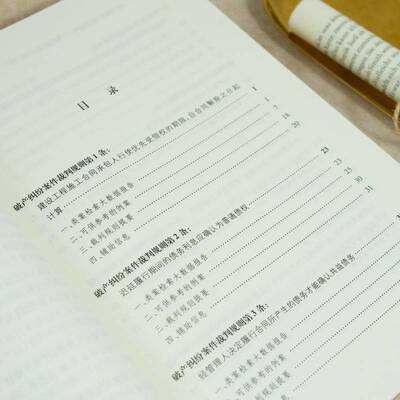 目 录
破产纠纷案件裁判规则第 1 条：
建设工程施工合同承包人行使优先受偿权的期限，自合同解除之日起
计算 1
一、类案检索大数据报告
二、可供参考的例案 7
三、裁判规则提要 18
四、辅助信息 20
破产纠纷案件裁判规则第 2 条：
迟延履行期间的债务利息应确认为普通债权 23
一、类案检索大数据报告 23
二、可供参考的例案 25
三、裁判规则提要 30
四、辅助信息 31
破产纠纷案件裁判规则第 3 条：
经管理人决定履行合同所产生的债务才能确认共益债务
一、类案检索大数据报告
二、可供参考的例案
三、裁判规则提要
四、辅助信息